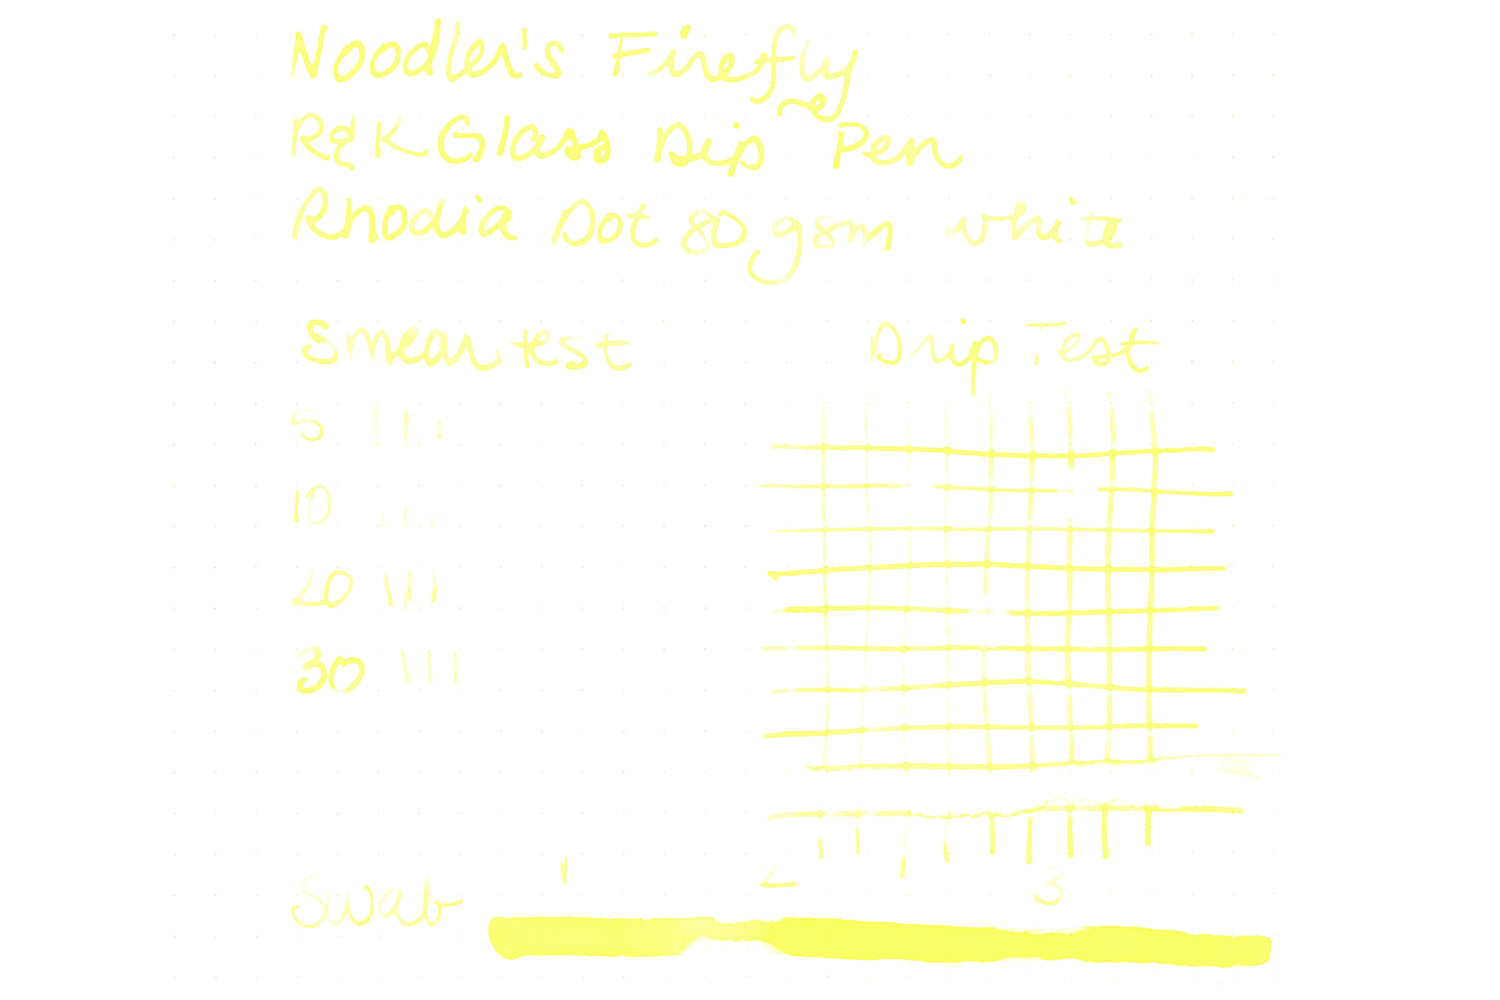 Noodler's Firefly
R&K Glass Dip Pen
Rhodia Dot 80 gsm white
Smear test
Drip Test
5
10
20
30
1 2 3
Swab